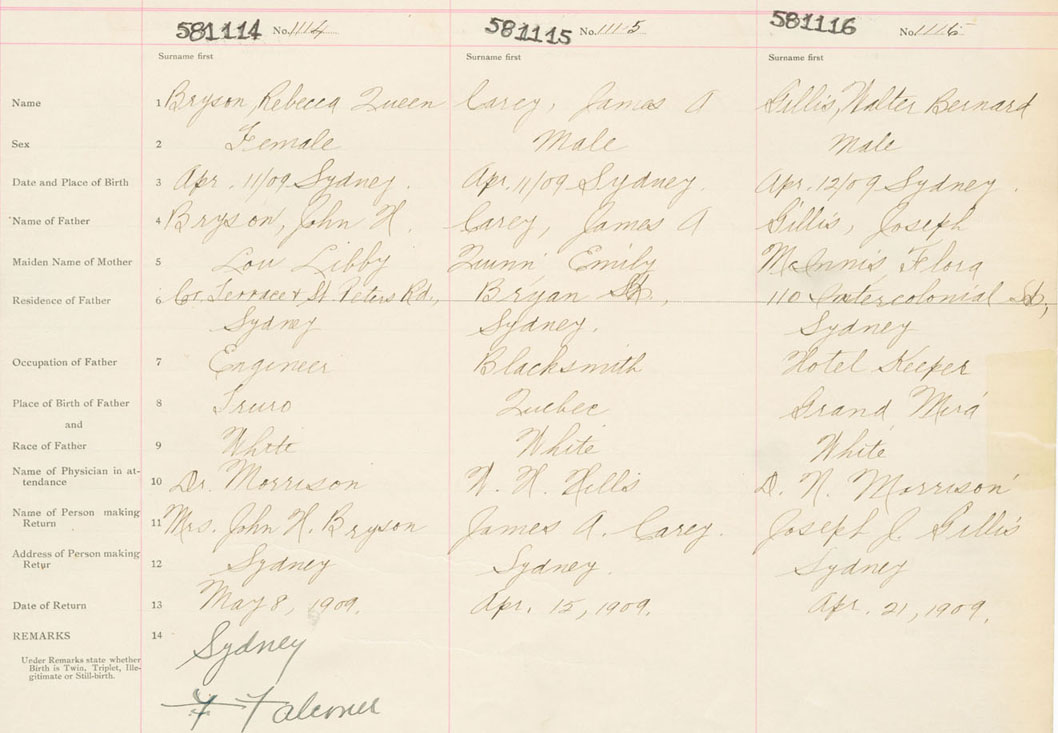 581114 No. 1114 581115 No. 1115 581116 No. 1116
Surname first Surname first Surname first
Name 1 Bryson, Rebecca Queen Carey, James A Gillis, Walter Bernard
Sex 2 Female Male Male
Date and Place of Birth 3 Apr. 11/09 Sydney. Apr. 11/09 Sydney. Apr. 12/09 Sydney.
Name of Father 4 Bryson, John H. Carey, James A Gillis, Joseph
Maiden Name of Mother 5 Lou Libby Quinn, Emily McInnis, Flora
Residence of Father 6 Cr. Terrace & St Peters Rd., Bryan St., 110 Intercolonial St.,
Sydney Sydney. Sydney
Occupation of Father 7 Engineer Blacksmith Hotel Keeper
Place of Birth of Father 8 Truro Quebec Grand Mira
and
Race of Father 9 White White White
Name of Physician in at-
tendance 10 Dr. Morrison W. H. Hills D. N. Morrison
Name of Person making
Return 11 Mrs. John H. Bryson James A. Carey. Joseph J. Gillis
Address of Person making
Retur 12 Sydney Sydney. Sydney
Date of Return 13 May 8, 1909. Apr. 15, 1909. Apr. 21, 1909.
REMARKS 14
Sydney
Under Remarks state whether
Birth is Twin, Triplet, Ille-
gitimate or Still-birth.
Falconer